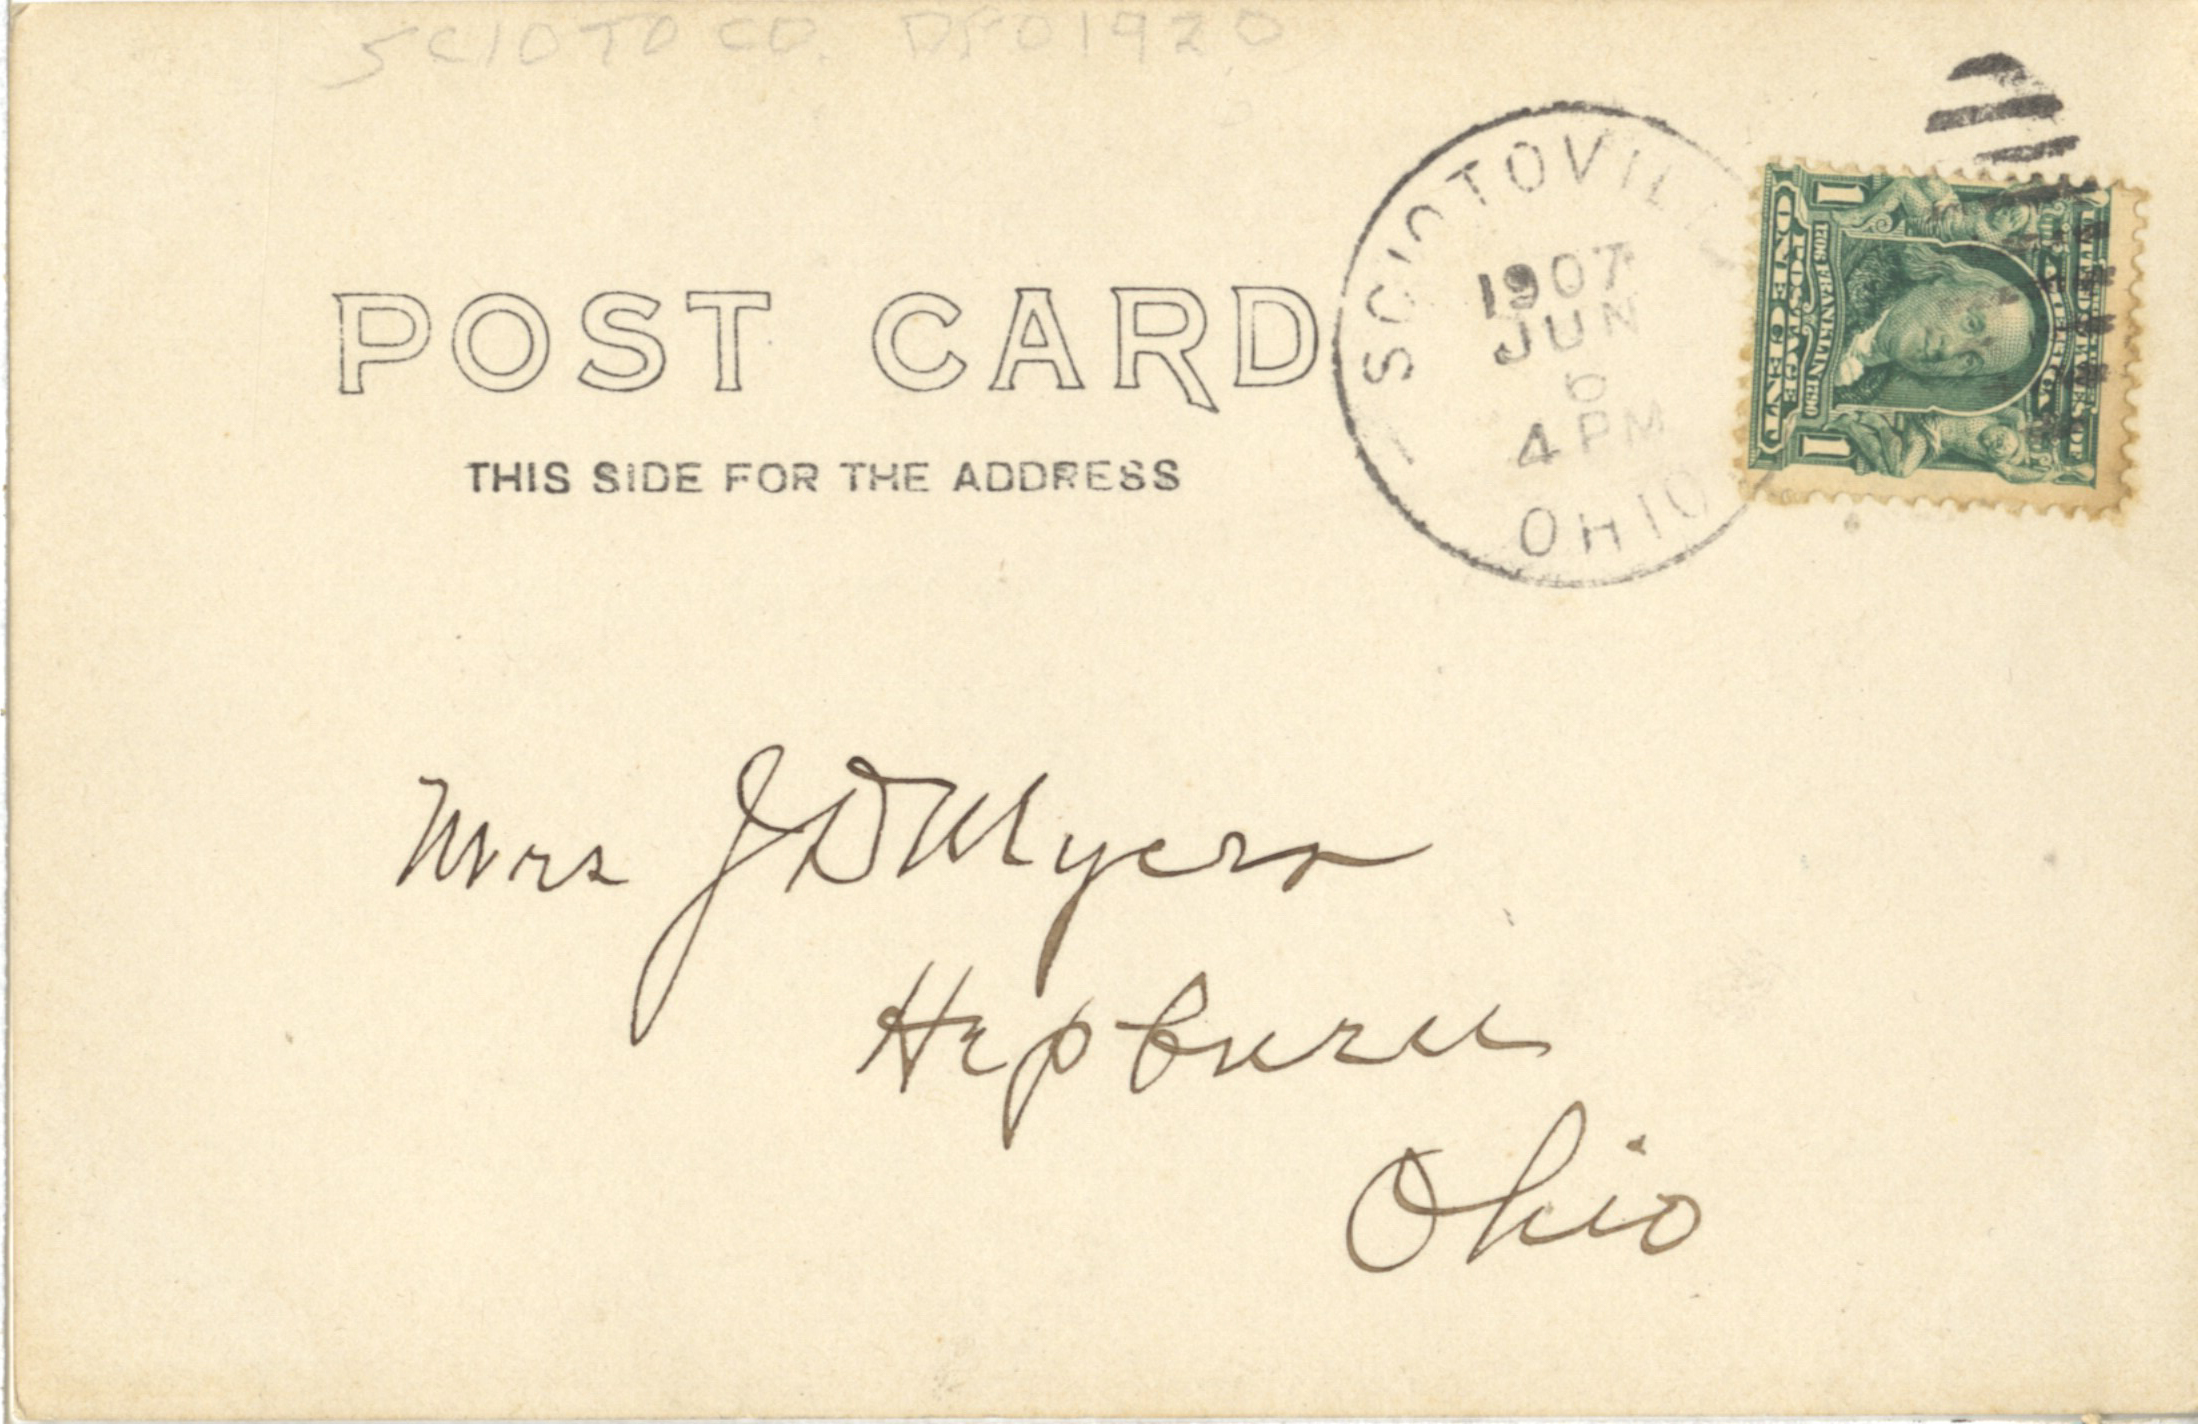 SCIOTO CO. DFO1920
SCIOTOVILL
1907
JUN
6
4 PM
OHIO
1 1
FRANKLIN
ONE CENT
POSTAGE
POST CARD
THIS SIDE FOR THE ADDRESS
Mrs J D Myers
Hepburn
Ohio